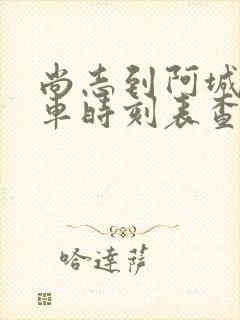 尚志到阿城
車時刻表查
哈達薩